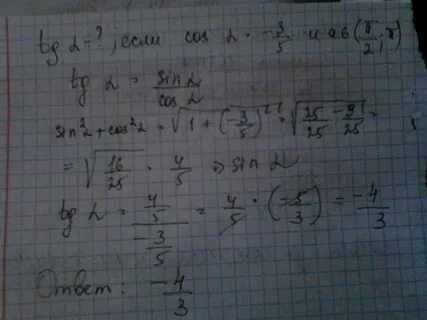 tg α - ?, если cos α = -3/5 и α ∈ (π/2; π)
tg α = sin α / cos α
sin²α + cos²α = √(1 + (-3/5)²) = √(25/25 - 9/25) =
= √(16/25) = 4/5 ⇒ sin α
tg α = (4/5) / (-3/5) = 4/5 · (-5/3) = -4/3
Ответ: -4/3